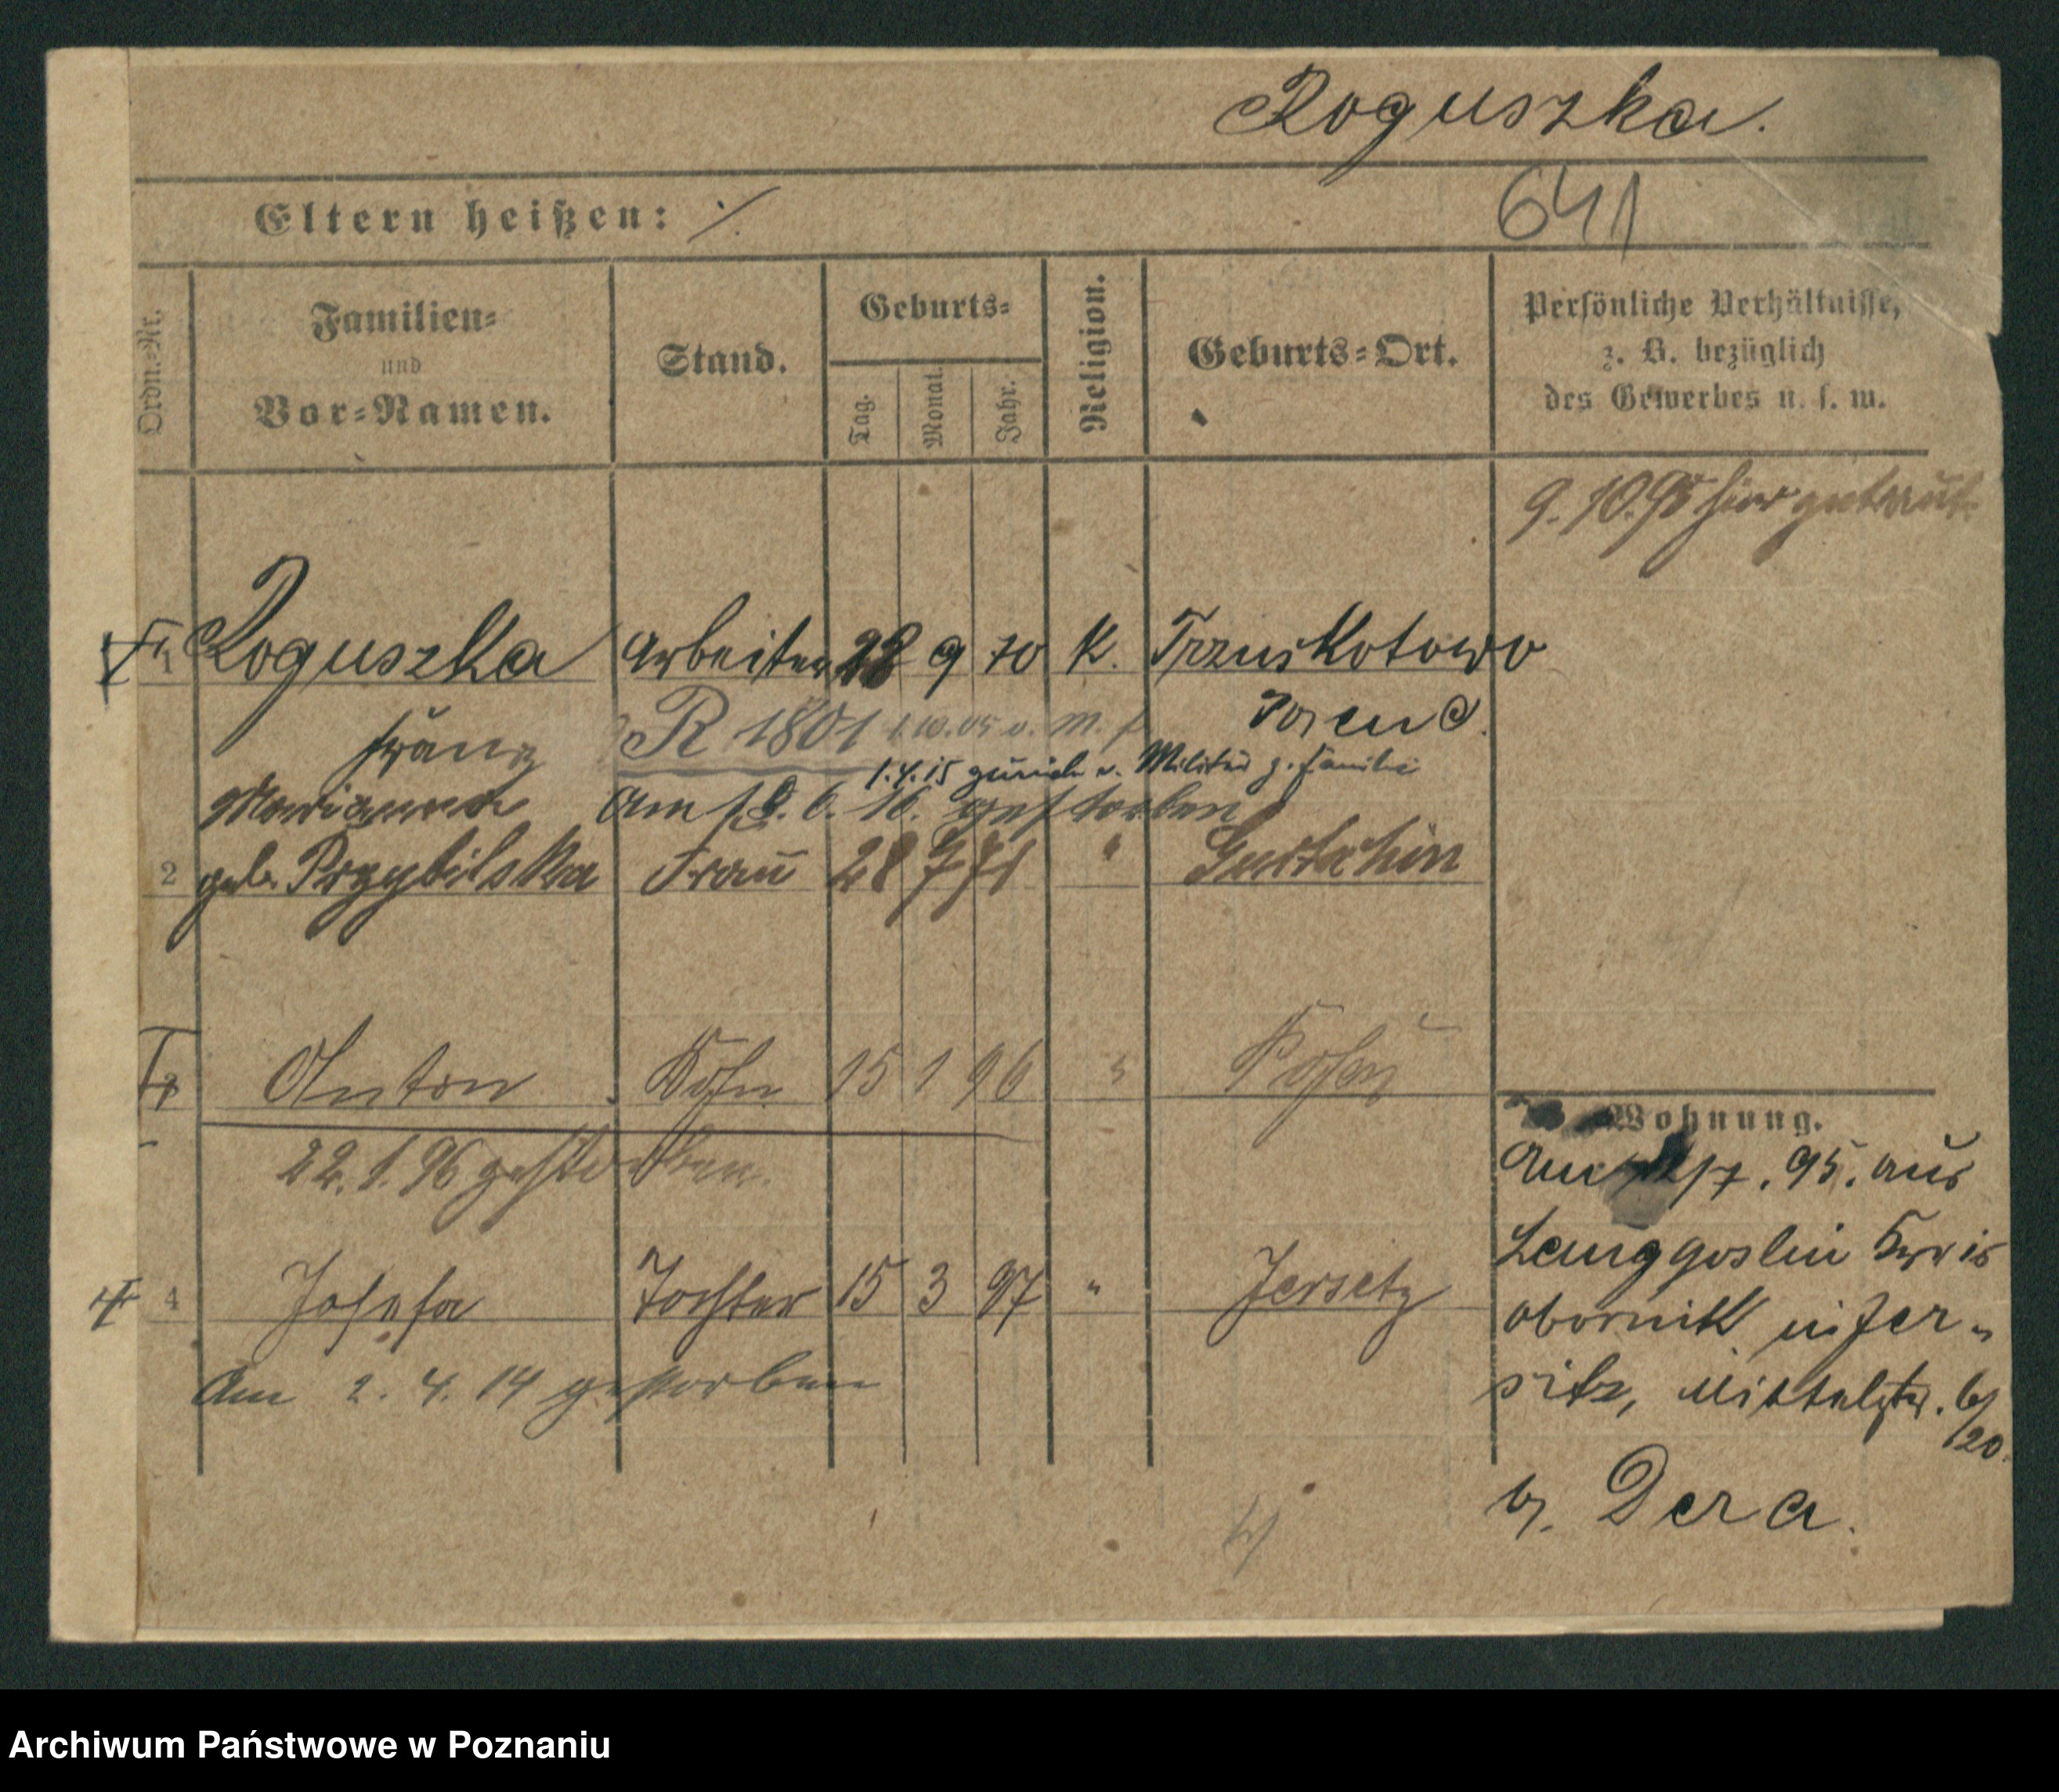 Roguszka.
641
Eltern heißen: ⁒
Ordn.-Nr.
Familien-
und
Vor-Namen.
Stand.
Geburts-
Tag.
Monat.
Jahr.
Religion.
Geburts-Ort.
Persönliche Verhältnisse,
z. B. bezüglich
des Gewerbes u. s. w.
9.10.95 hier getraut.
1 Roguszka Arbeiter 28 9 70 K. Trzuskotowo
Franz R 1801 1.10.05 v. M. Posen O.
1.4.15 zurück v. Militär z. Familie
Marianna Am 18. 6. 16. gestorben
2 geb. Przybilska Frau 28 7 71 "
3 Anton Sohn 15 1 96 " Posen
22.1.96 gestorben.
4 Josefa Tochter 15 3 97 " Jersitz
Am 2. 4. 14 gestorben
Wohnung.
Am 12/7. 95. aus
Langgoslin Kreis
Obornik in Jer-
sitz, Mittelstr. 6/
20.
b. Dera.
Archiwum Państwowe w Poznaniu